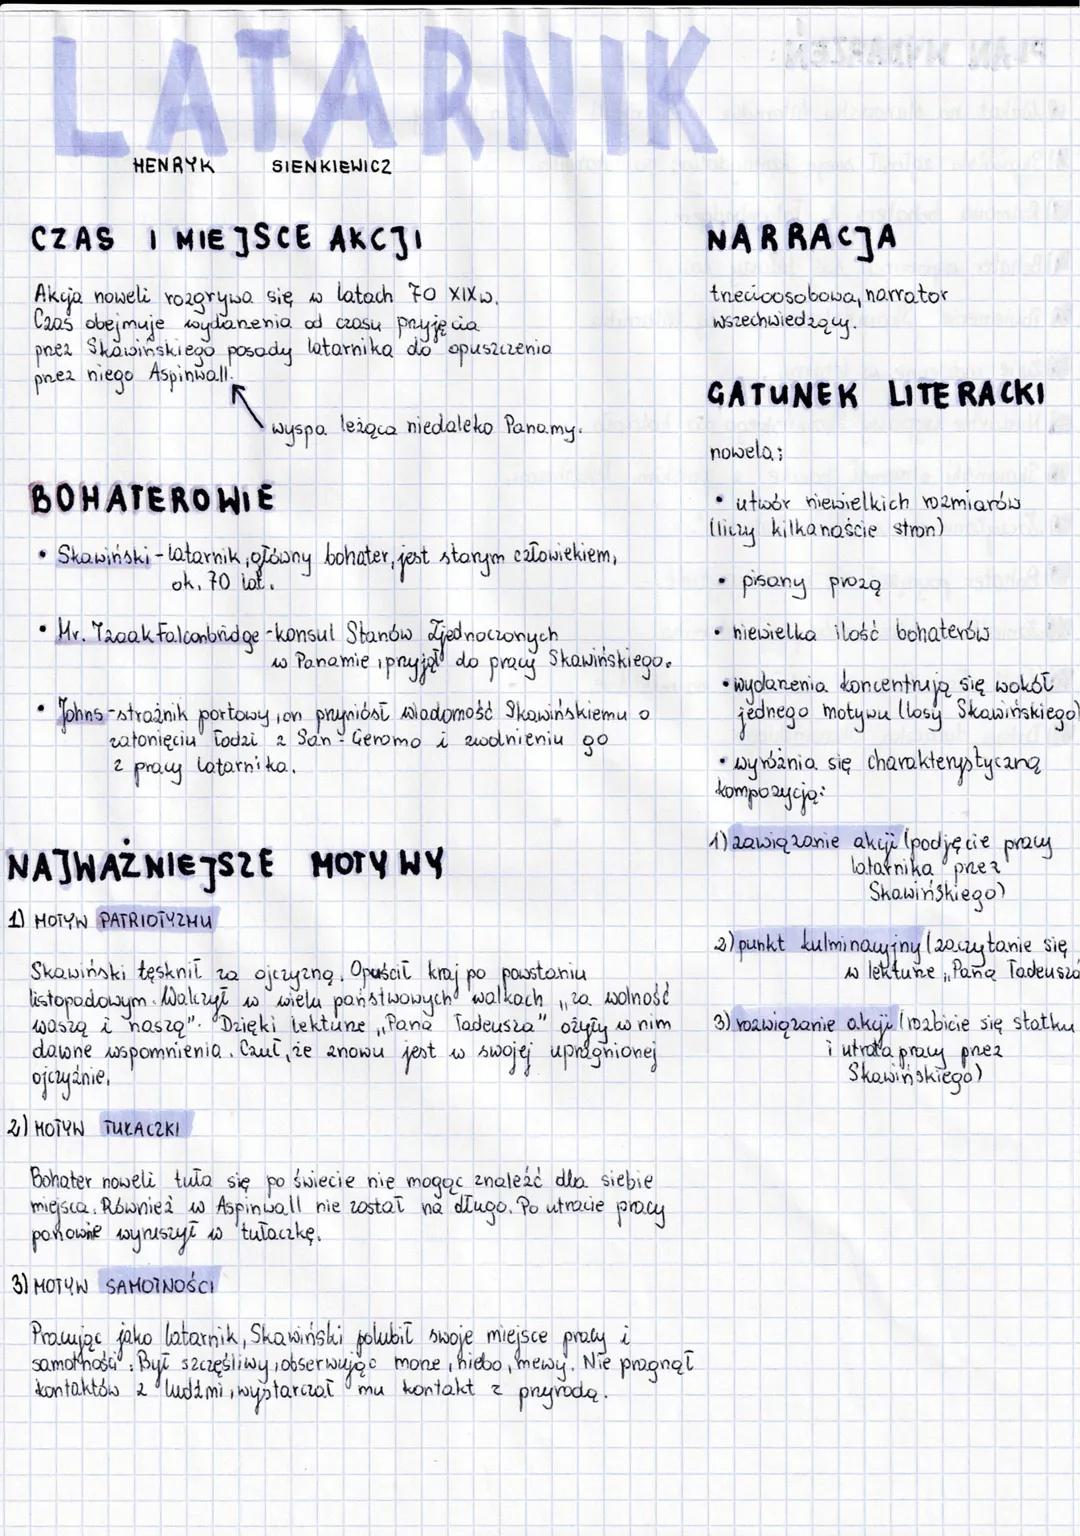 LATARNIK
HENRYK SIENKIEWICZ
CZAS I MIEJSCE AKCJI
Akcja noweli rozgrywa się w latach 70 XIXw.
Czas obejmuje wydarzenia od czasu przyjęcia
przez Skawińskiego posady latarnika do opuszczenia
przez niego Aspinwall.
wyspa leżąca niedaleko Panamy.
BOHATEROWIE
• Skawiński - latarnik, główny bohater, jest starym człowiekiem,
ok. 70 lat.
• Mr. Izaak Falconbridge - konsul Stanów Zjednoczonych
w Panamie, przyjął do pracy Skawińskiego.
• Johns - strażnik portowy, on przyniósł wiadomość Skawińskiemu o
zatonięciu łodzi z San-Geromo i zwolnieniu go
z pracy latarnika.
NAJWAŻNIEJSZE MOTYWY
1) MOTYW PATRIOTYZMU
Skawiński tęsknił za ojczyzną. Opuścił kraj po powstaniu
listopadowym. Walczył w wielu państwowych walkach „za wolność
waszą i naszą". Dzięki lekturze „Pana Tadeusza" ożyły w nim
dawne wspomnienia. Czuł, że znowu jest w swojej upragnionej
ojczyźnie.
2) MOTYW TUŁACZKI
Bohater noweli tuła się po świecie nie mogąc znaleźć dla siebie
miejsca. Również w Aspinwall nie został na długo. Po utracie pracy
ponownie wyruszył w tułaczkę.
3) MOTYW SAMOTNOŚCI
Pracując jako latarnik, Skawiński polubił swoje miejsce pracy i
samotność. Był szczęśliwy, obserwując morze, niebo, mewy. Nie pragnął
kontaktów z ludźmi, wystarczał mu kontakt z przyrodą.
NARRACJA
trzecioosobowa, narrator
wszechwiedzący.
GATUNEK LITERACKI
nowela:
• utwór niewielkich rozmiarów
(liczy kilkanaście stron)
• pisany prozą
• niewielka ilość bohaterów
• wydarzenia koncentrują się wokół
jednego motywu (losy Skawińskiego)
• wyróżnia się charakterystyczną
kompozycją:
1) zawiązanie akcji (podjęcie pracy
latarnika przez
Skawińskiego)
2) punkt kulminacyjny (zaczytanie się
w lekturze „Pana Tadeusza
3) rozwiązanie akcji (rozbicie się statku
i utrata pracy przez
Skawińskiego)